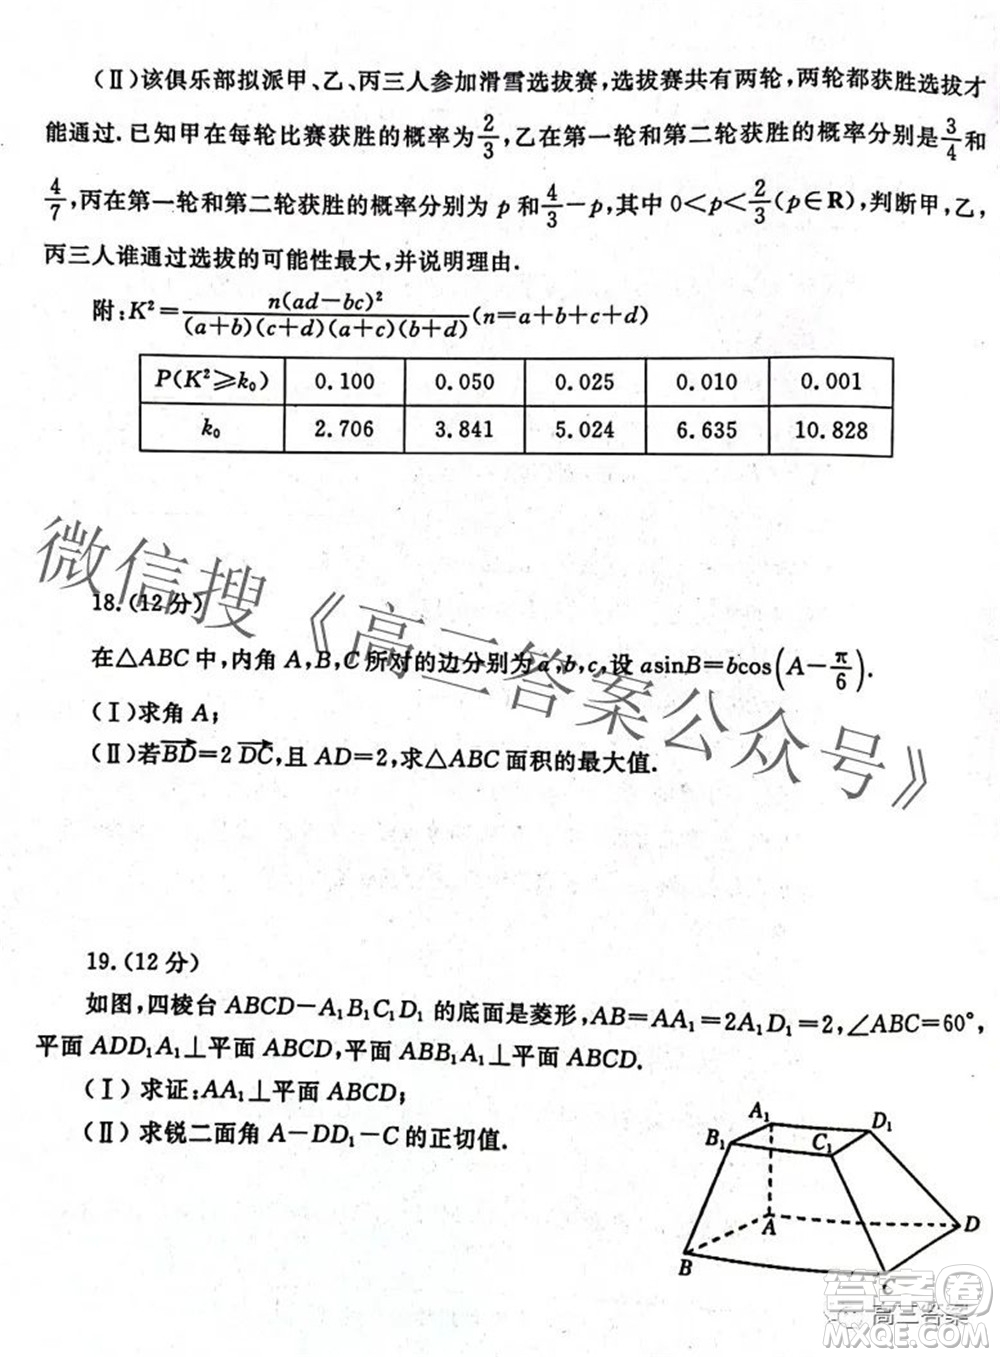 (Ⅱ)该俱乐部拟派甲、乙、丙三人参加滑雪选拔赛,选拔赛共有两轮,两轮都获胜选拔才
能通过.已知甲在每轮比赛获胜的概率为2/3,乙在第一轮和第二轮获胜的概率分别是3/4和
4/7,丙在第一轮和第二轮获胜的概率分别为 p 和4/3-p,其中 0<p<2/3(p∈R),判断甲,乙,
丙三人谁通过选拔的可能性最大,并说明理由.
附:K²=n(ad-bc)²/(a+b)(c+d)(a+c)(b+d)(n=a+b+c+d)
P(K²≥k₀) 0.100 0.050 0.025 0.010 0.001
k₀ 2.706 3.841 5.024 6.635 10.828
微信搜《高三答案公众号》
18.(12分)
在△ABC中,内角 A,B,C 所对的边分别为 a,b,c,设 asinB=bcos(A-π/6).
(Ⅰ)求角 A;
(Ⅱ)若BD→=2 DC→,且 AD=2,求△ABC 面积的最大值.
19.(12分)
如图,四棱台 ABCD-A₁B₁C₁D₁ 的底面是菱形,AB=AA₁=2A₁D₁=2,∠ABC=60°,
平面 ADD₁A₁⊥平面 ABCD,平面 ABB₁A₁⊥平面 ABCD.
(Ⅰ)求证:AA₁⊥平面 ABCD;
(Ⅱ)求锐二面角 A-DD₁-C 的正切值.
A₁
D₁
B₁
C₁
A
D
B
C
答案卷
高三答案
MXQE.COM